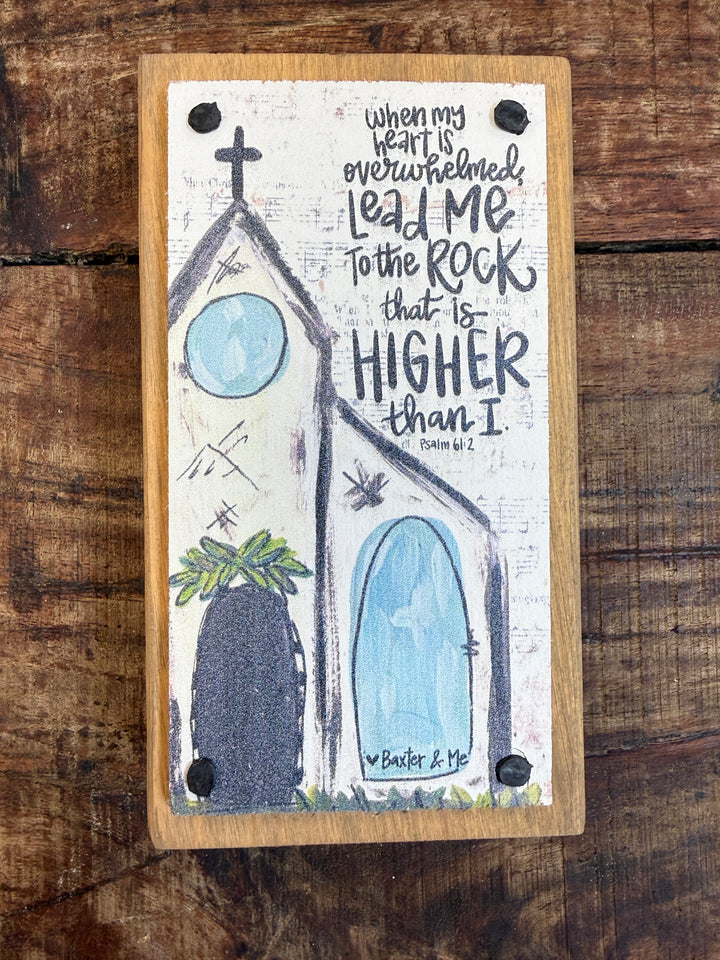 when my
heart is
overwhelmed,
Lead Me
To the ROCK
that is
HIGHER
than I.
Psalm 61:2
Baxter & Me